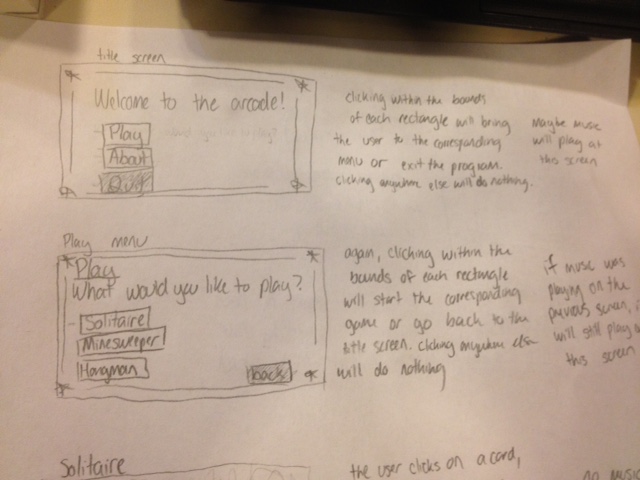 title screen
Welcome to the arcade!
Play
About
clicking within the bounds
of each rectangle will bring
the user to the corresponding
menu or exit the program.
clicking anywhere else will do nothing.
Maybe music
will play at
this screen
Play menu
Play
What would you like to play?
Solitaire
Minesweeper
Hangman
back
again, clicking within the
bounds of each rectangle
will start the corresponding
game or go back to the
title screen. clicking anywhere else
will do nothing
if music was
playing on the
previous screen, i
will still play a
this screen
Solitaire
the user clicks on a card,
no music